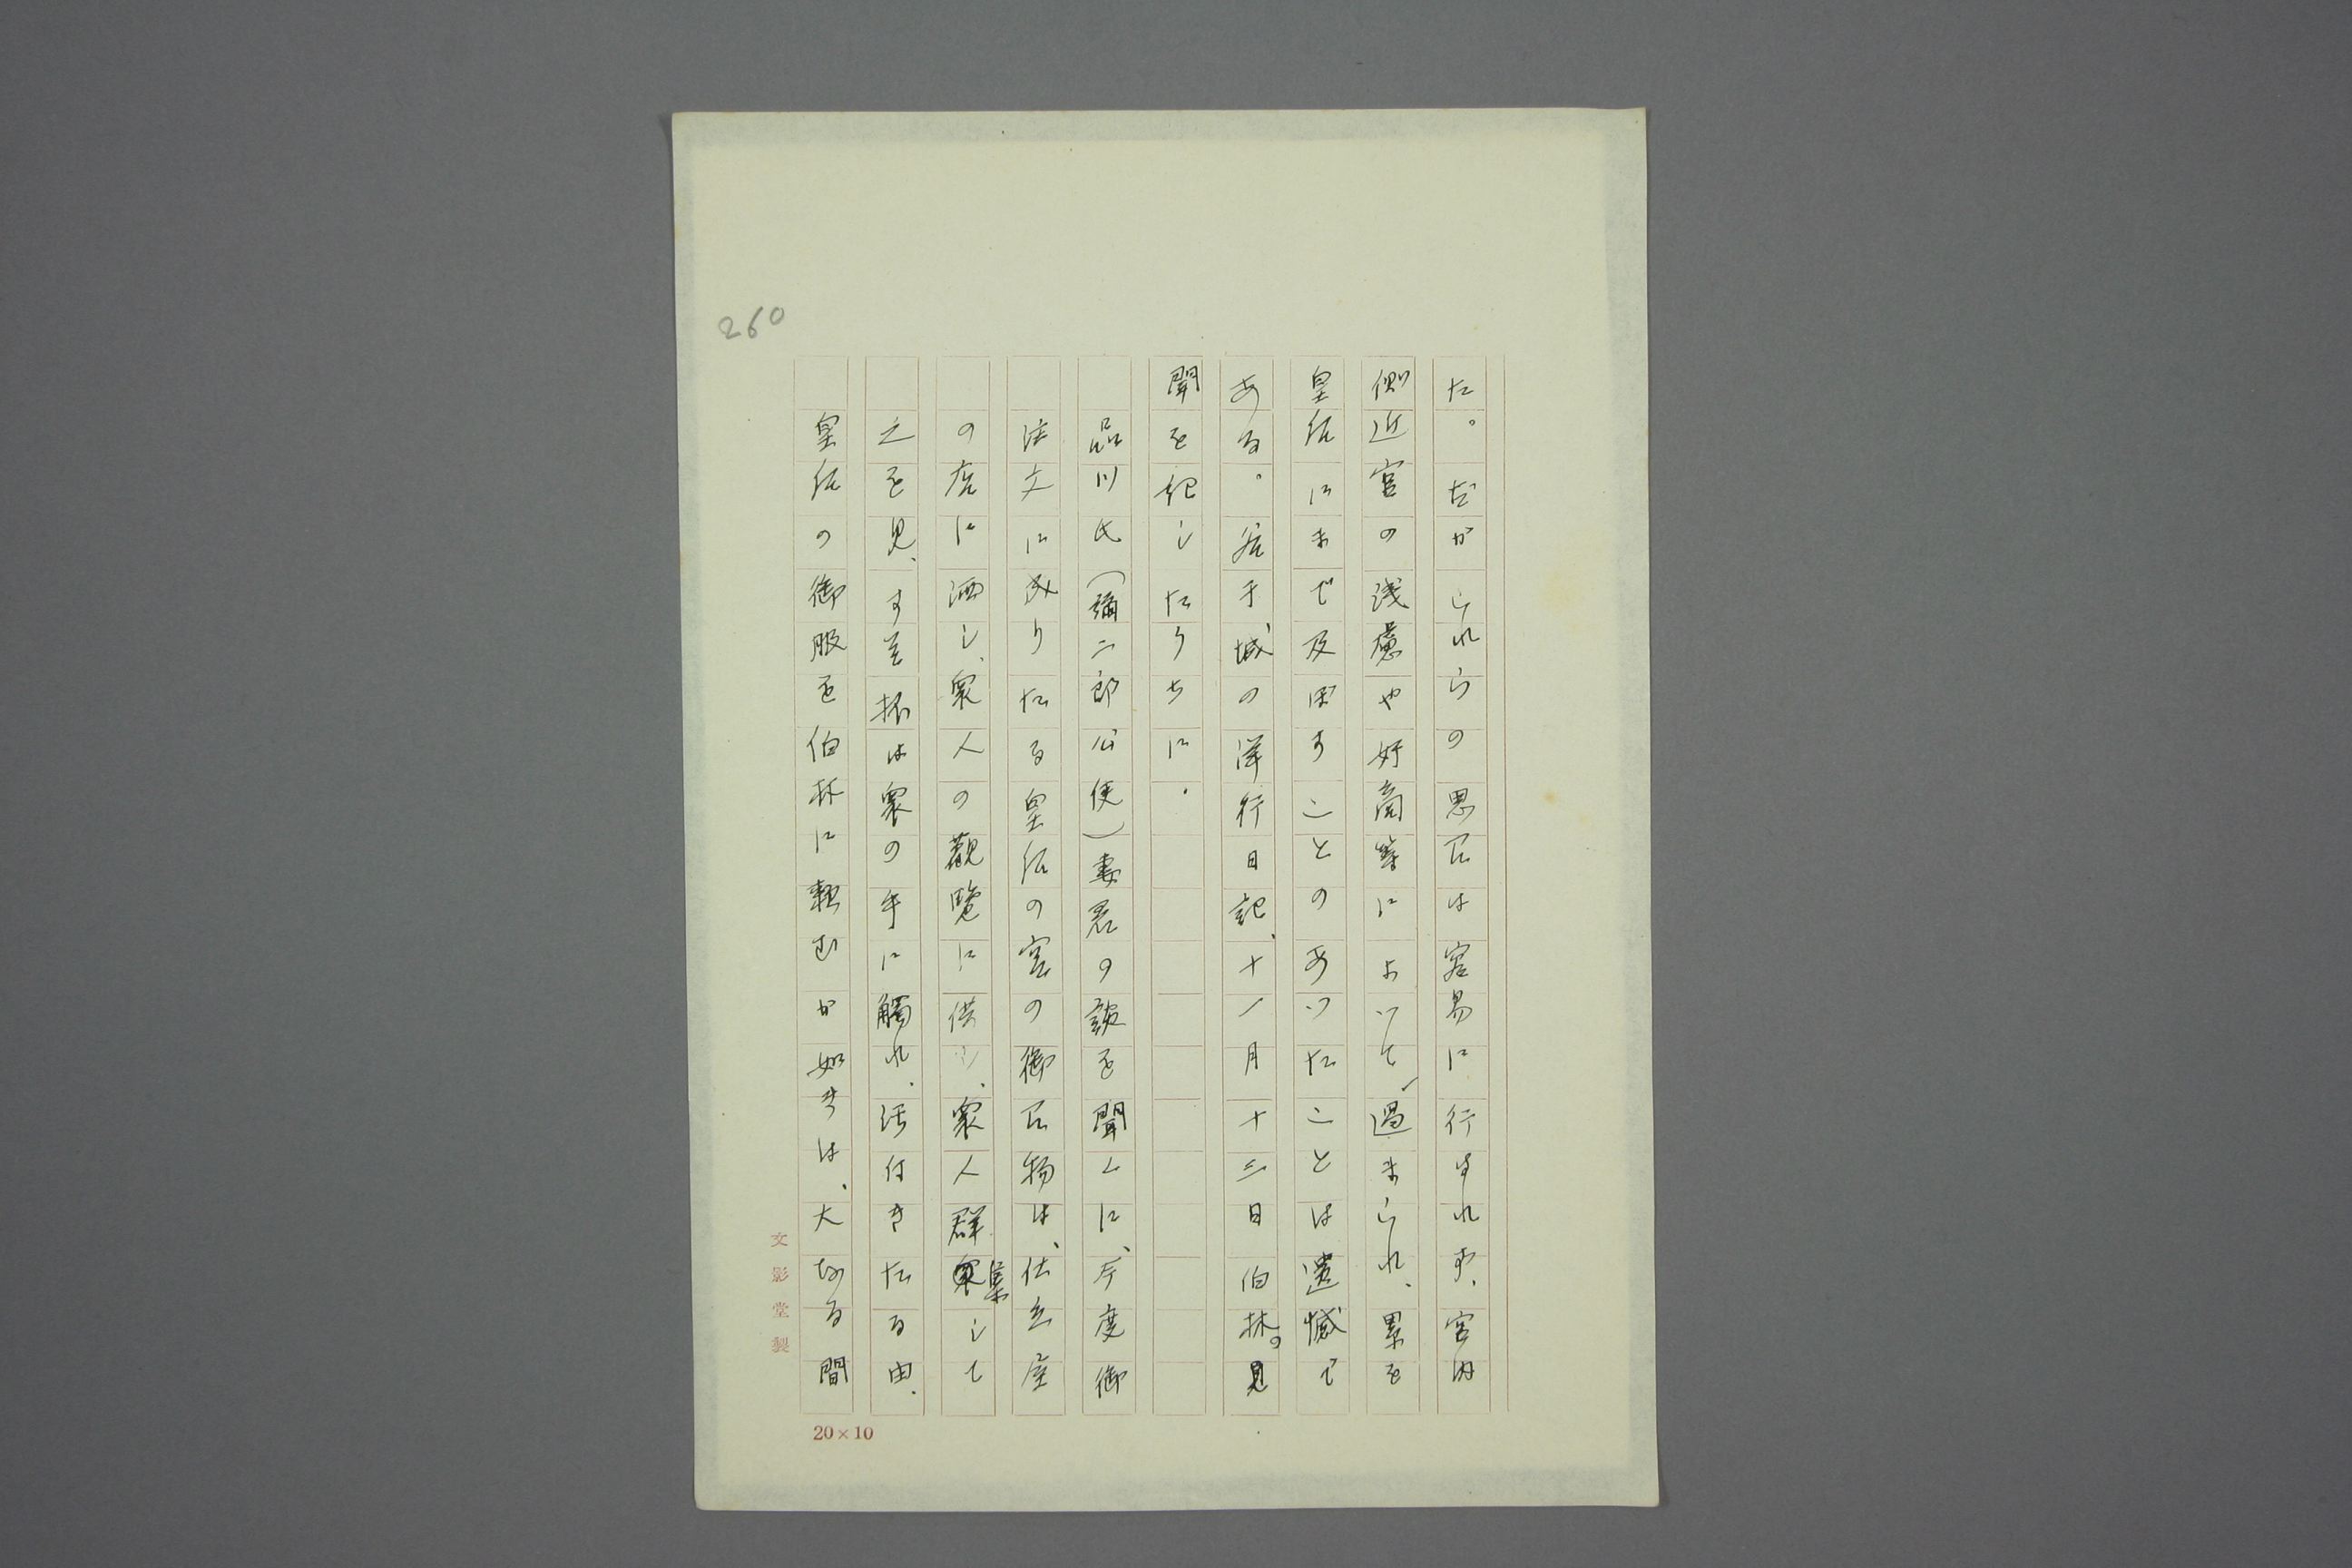 260
た。だがこれらの思召は容易に行はれず、宮内
側近官の浅慮や奸商等によつて、過まられ、累を
皇后にまで及ぼすことのあつたことは遺憾で
ある。谷干城の洋行日記、十一月十三日伯林の見
聞を紀したうちに、
品川氏(彌二郎公使)妻君の談を聞くに、今度御
注文に成りたる皇后の宮の御召物は、仕立屋
の店に洒し、衆人の觀覧に供し、衆人群集して
之を見、す至抔は衆の手に觸れ、汚付きたる由、
皇后の御服を伯林に頼むが如きは、大なる間
文影堂製
20×10